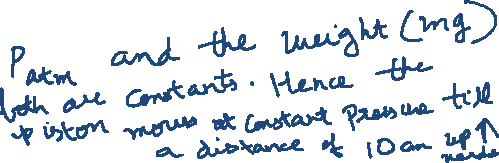 Patm and the weight (mg)
both are constants. Hence the
piston moves at constant Pressure till
a distance of 10 cm upwards